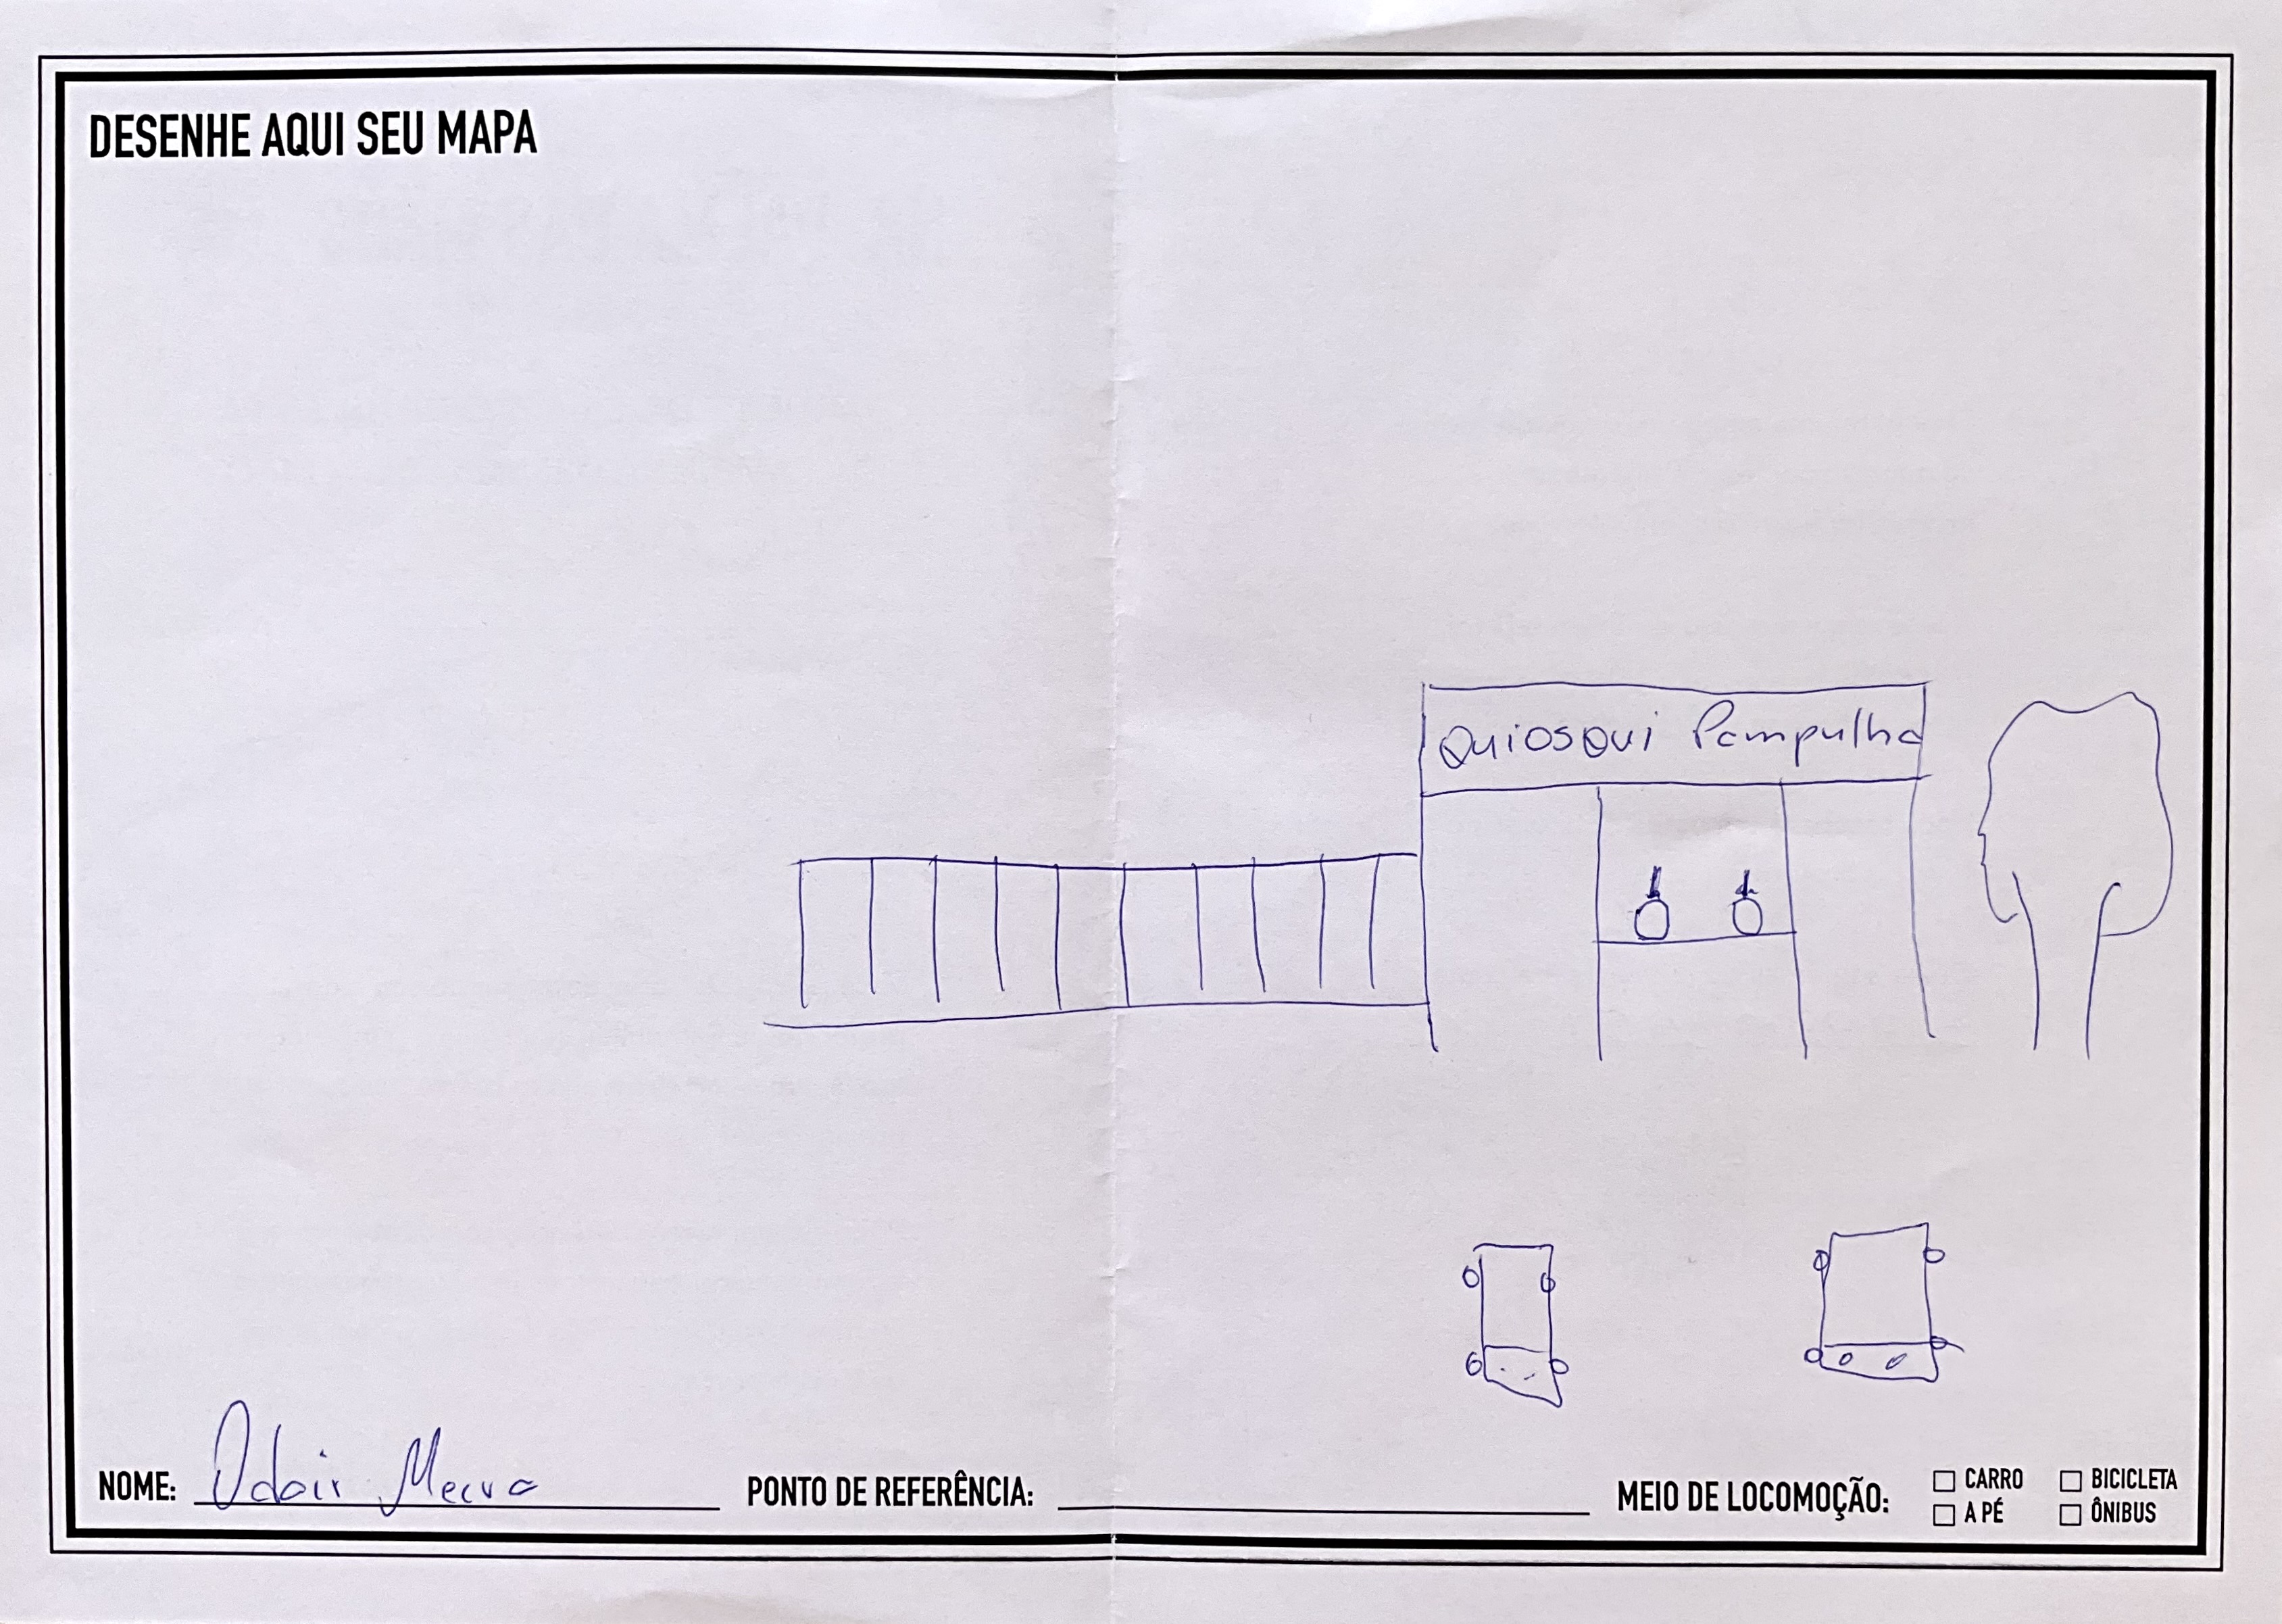 DESENHE AQUI SEU MAPA
QUIOSQUI Pampulha
NOME: Odair
PONTO DE REFERÊNCIA:
MEIO DE LOCOMOÇÃO:
CARRO
BICICLETA
A PÉ
ÔNIBUS